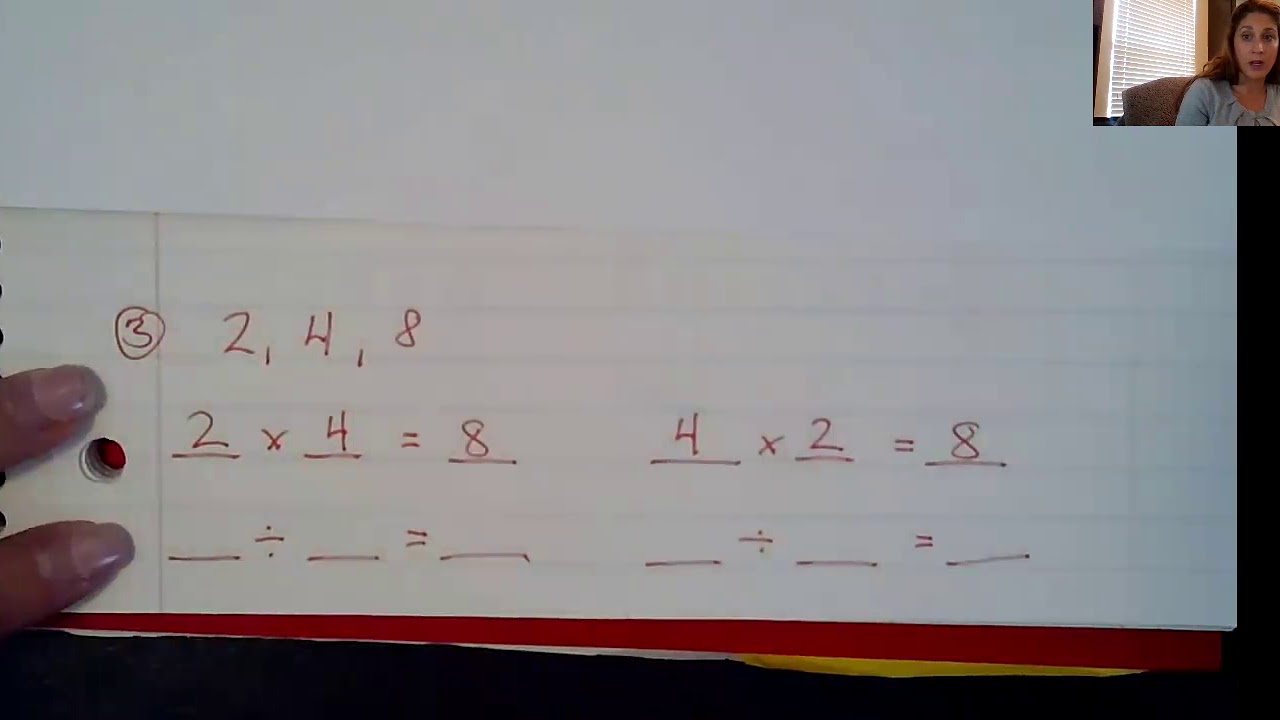 ③ 2, 4, 8
2 × 4 = 8 4 × 2 = 8
__ ÷ __ = __ __ ÷ __ = __